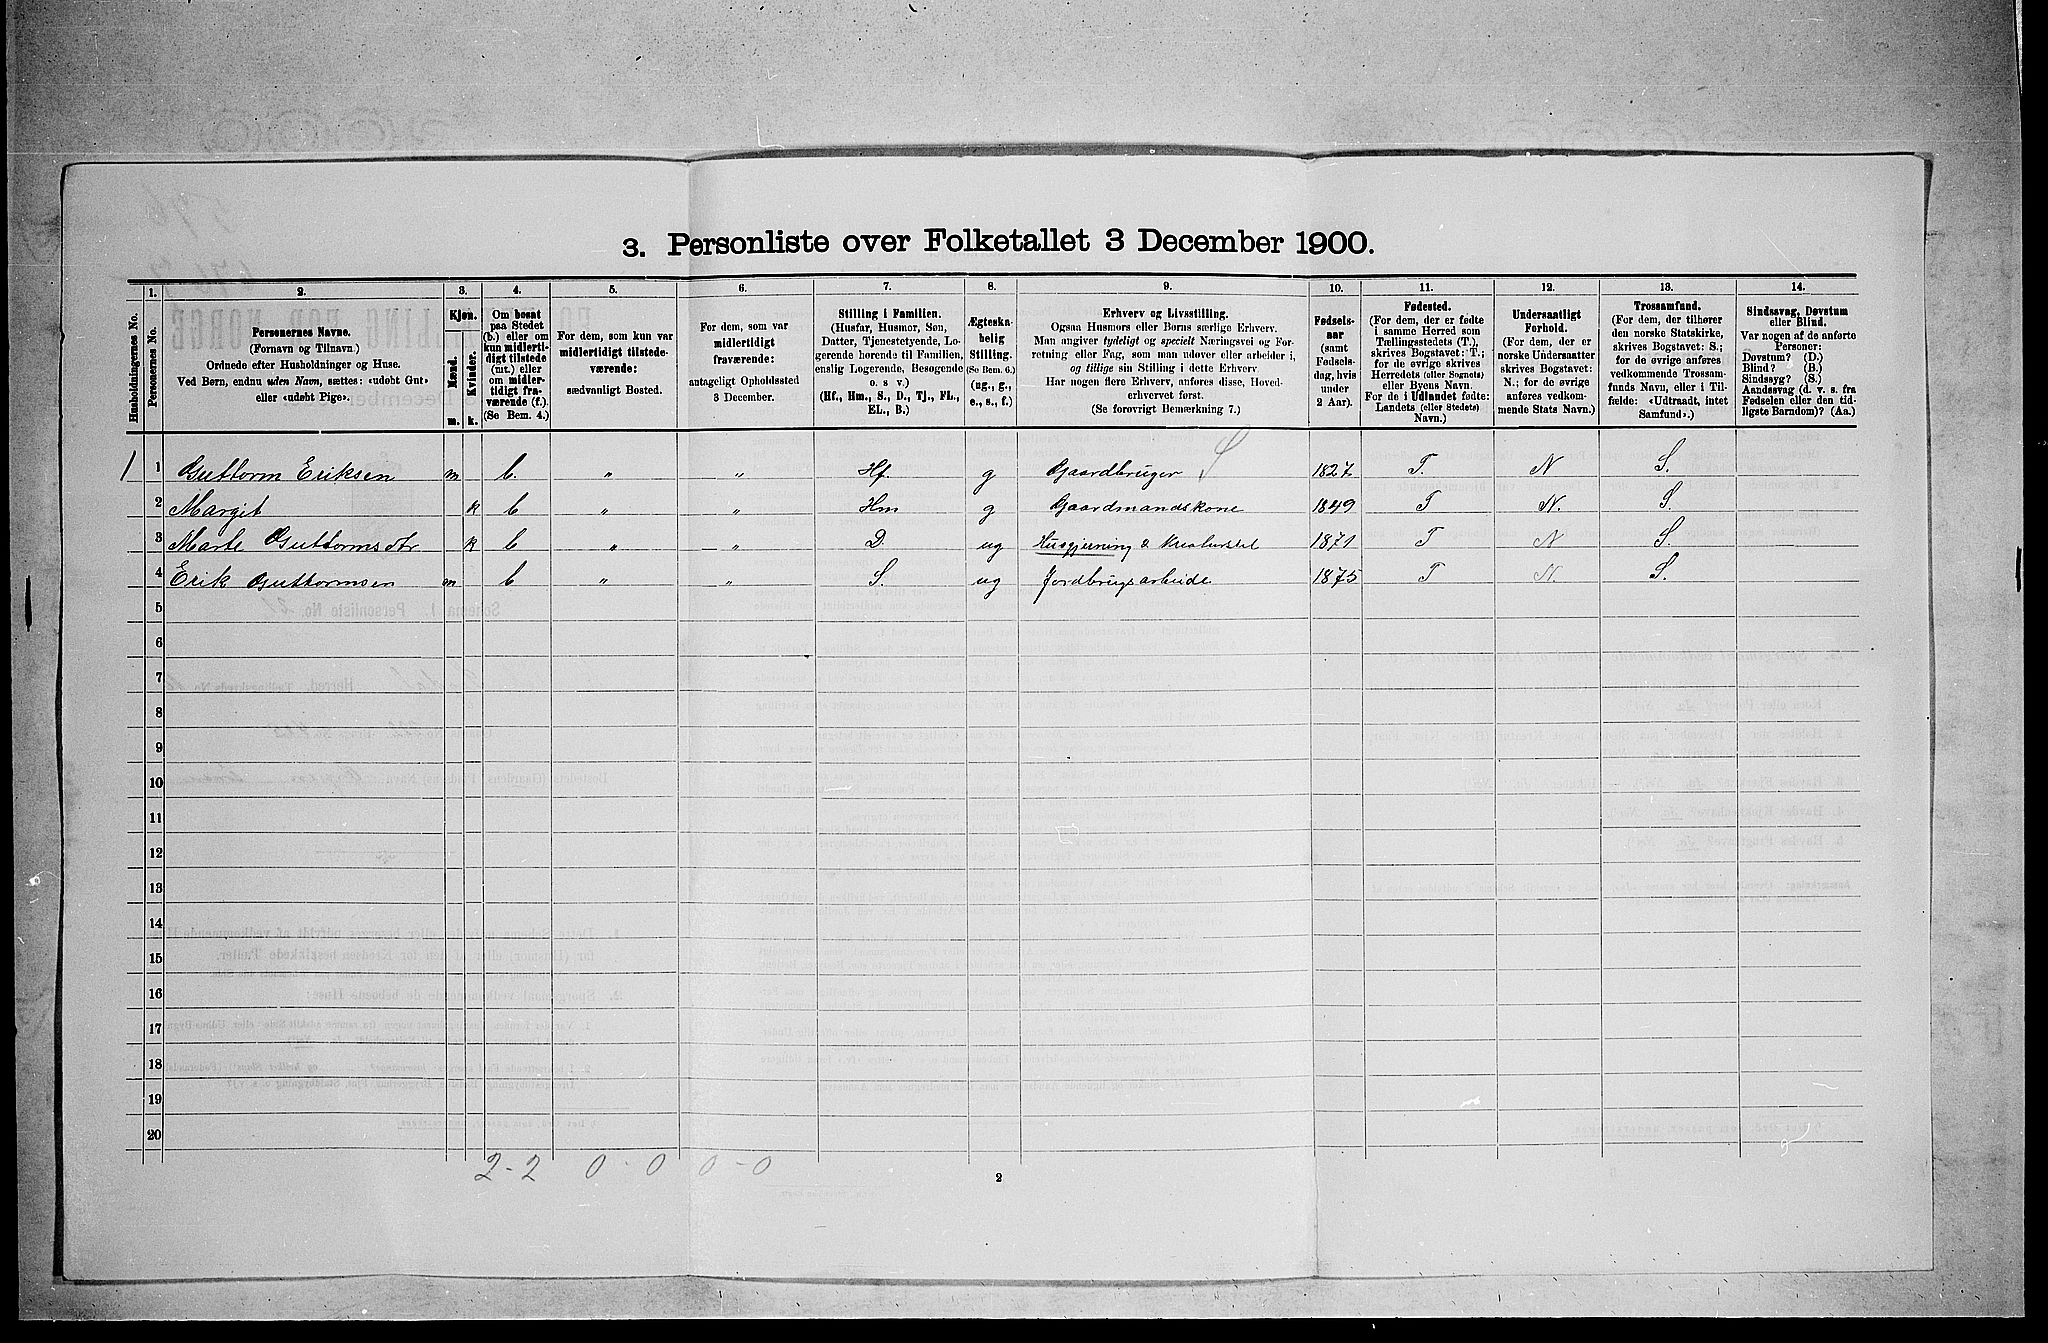 3. Personliste over Folketallet 3 December 1900.
1. 2. 3. 4. 5. 6. 7. 8. 9. 10. 11. 12. 13. 14.
Husholdningernes No.
Personernes No.
Personernes Navne.
(Fornavn og Tilnavn.)
Ordnede efter Husholdninger og Huse.
Ved Børn, endnu uden Navn, sættes: «udøbt Gut»
eller «udøbt Pige».
Kjøn.
Mænd.
Kvinder.
m. k.
Om bosat
paa Stedet
(b.) eller om
kun midlerti-
digt tilstede
(mt.) eller
om midler-
tidigt fra-
værende (f.)
(Se Bem. 4.)
For dem, som kun var
midlertidigt tilstede-
værende:
sædvanligt Bosted.
For dem, som var
midlertidigt
fraværende:
antageligt Opholdssted
3 December.
Stilling i Familien.
(Husfar, Husmor, Søn,
Datter, Tjenestetyende, Lo-
gerende hørende til Familien,
enslig Logerende, Besøgende
o. s v.)
(Hf., Hm., S., D., Tj., FL.,
EL., B.)
Ægteska-
belig
Stilling.
(Se Bem. 6.)
(ug., g.,
e., s., f.)
Erhverv og Livsstilling.
Ogsaa Husmors eller Børns særlige Erhverv.
Man angiver tydeligt og specielt Næringsvei og For-
retning eller Fag, som man udøver eller arbeider i,
og tillige sin Stilling i dette Erhverv.
Har nogen flere Erhverv, anføres disse, Hoved-
erhvervet først.
(Se forøvrigt Bemærkning 7.)
Fødsels-
aar
(samt
Fødsels-
dag, hvis
under
2 Aar).
Fødested.
(For dem, der er fødte
i samme Herred som
Tællingsstedets (T.),
skrives Bogstavet: T.;
for de øvrige skrives
Herredets (eller Sognets)
eller Byens Navn.
For de i Udlandet fødte:
Landets (eller Stedets)
Navn.)
Undersaatligt
Forhold.
(For dem, der er
norske Undersaatter
skrives Bogstavet:
N.; for de øvrige
anføres vedkom-
mende Stats Navn.)
Trossamfund.
(For dem, der tilhører
den norske Statskirke,
skrives Bogstavet: S.;
for de øvrige anføres
vedkommende Trossam-
funds Navn, eller i Til-
fælde: «Udtraadt, intet
Samfund».)
Sindssvag, Døvstum
eller Blind.
Var nogen af de anførte
Personer:
Døvstum? (D.)
Blind? (B.)
Sindssyg? (S.)
Aandssvag (d. v. s. fra
Fødselen eller den tid-
ligste Barndom)? (Aa.)
1 1 Guttorm Eriksen m b. " " Hf. g Gaardbruger S 1827 T. N S.
2 Margit k b " " Hm g Gaardmandskone 1849 T N. S.
3 Marte Guttormsdtr k b " " D. ug Husgjerning & Kreaturstel 1871 T N S.
4 Erik Guttormsen m b " " S. ug Jordbrugsarbeide 1875 T N. S.
5
6
7
8
9
10
11
12
13
14
15
16
17
18
19
20
2-2 0-0 0-0
2